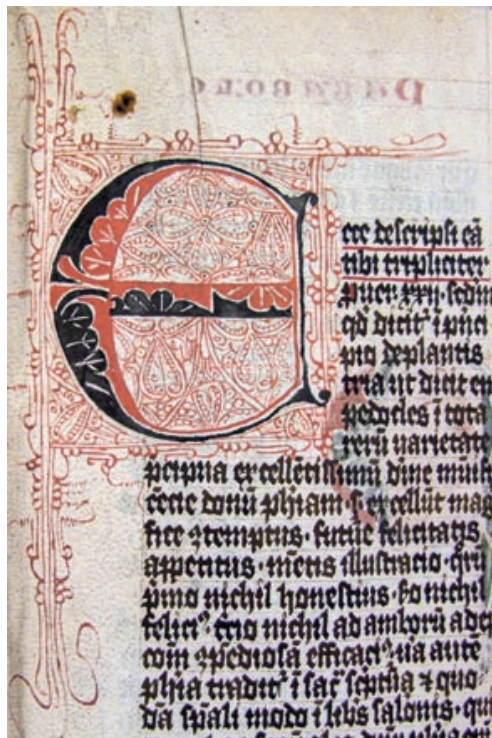 E
cce descripsi eā
tibi tripliciter
ꝓuer. xxij. sedm
qd dicit' ī pnci
pio de plantis
tria ut dicit em
pedocles ī tota
rerū uarietate
p̄cipua excellētissimū diīe muīfi
cēcie donū phiam s. excellūt mag
fice ꝯtemptus. future felicitatis
appetitus. mētis illustracio. qrū
p̄mo nichil honestius. ſo nichil
felici⁹. tcio nichil ad amborū adep
coīm ꝯpediosā efficaci⁹ autē
phia tradit' ī sac' sc'ptā ꝛ quo
dā sp̄ali modo ī libs salonis. qui